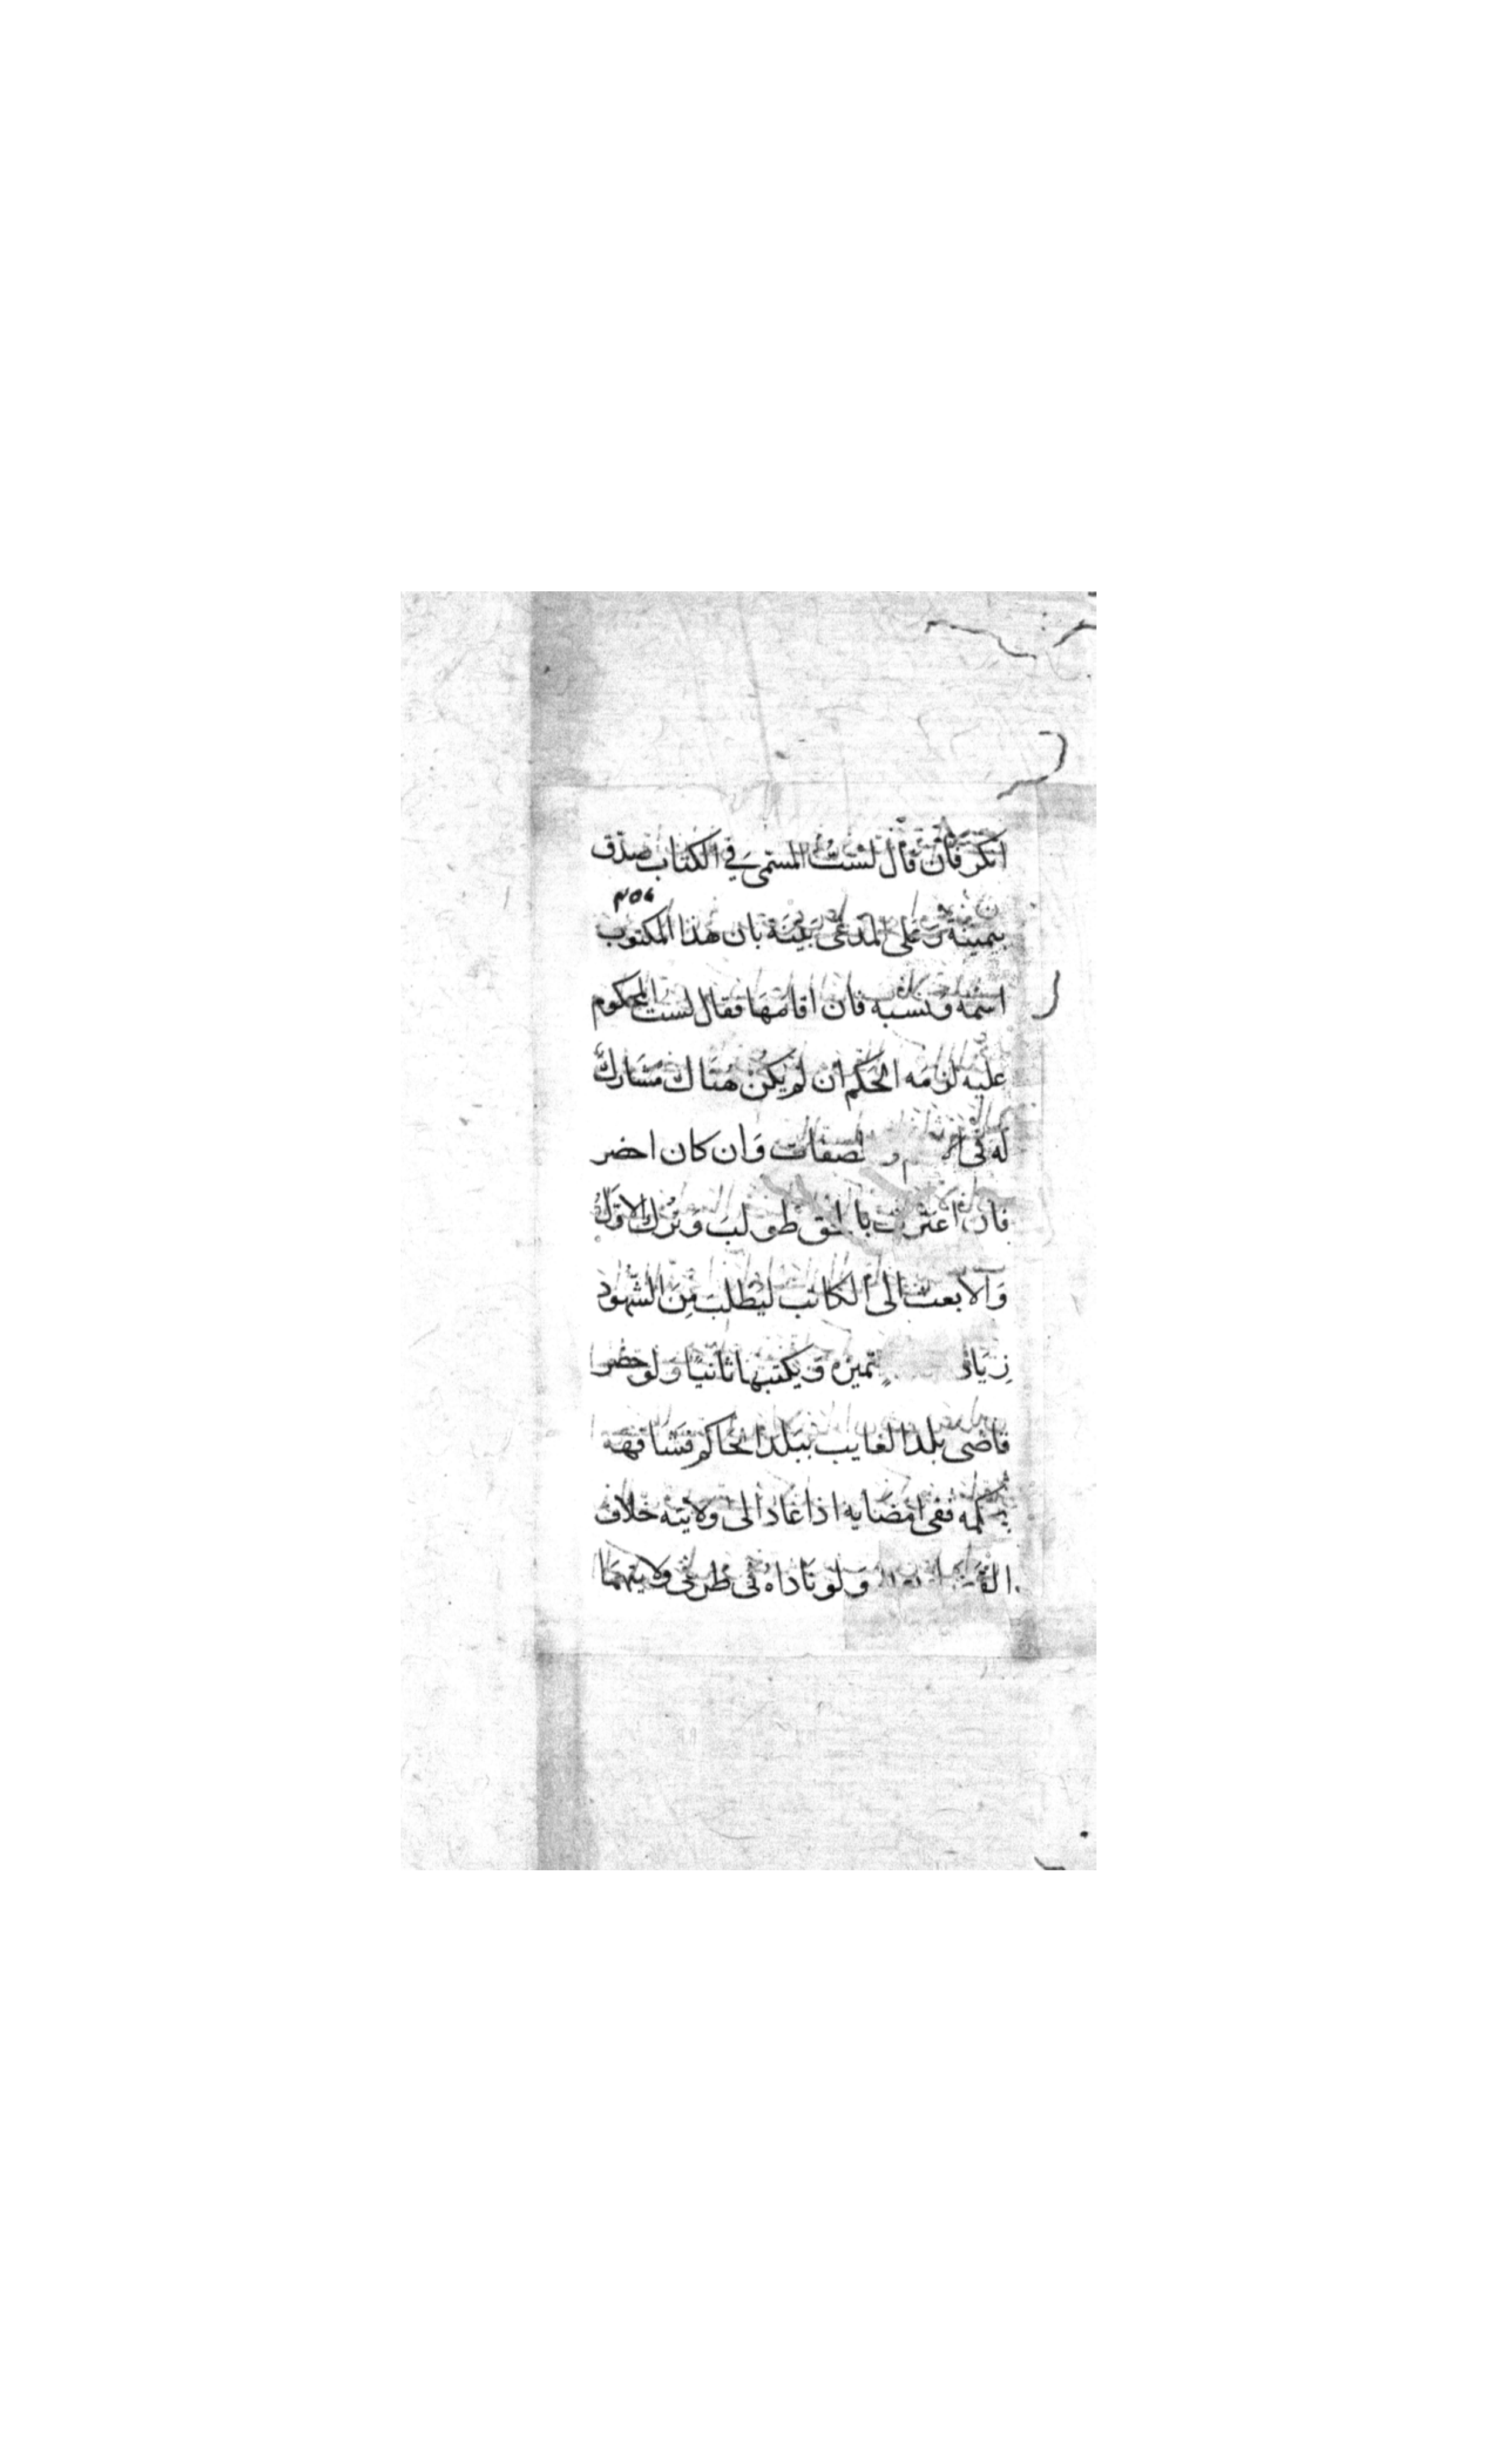 انكر فان قال لست المسمى في الكتاب صدق
بيمينه وعلى المدعى بينة بان هذا المكتوب
اسمه ونسبه فان اقامها فقال لست المحكوم
عليه لزمه الحكم ان لم يكن هناك مشارك
له في و لصفات وان كان احضر
فان اعترف بالحق طولب وترك الاول
والا بعث الى الكاتب ليطلب من الشهود
زياد تميزه ويكتبها ثانيا ولو حضر
قاضى بلد الغايب ببلد الحاكم فشافهه
بحكمه ففى امضايه اذا عاد الى ولايته خلاف
ولو ناداه فى طرفى ولايتهما